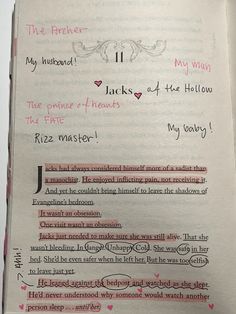 The Archer
My husband!
11
My man
Jacks of the Hollow
The prince of hearts
The FATE
My baby!
Rizz master!
Jacks had always considered himself more of a sadist than
a masochist. He enjoyed inflicting pain, not receiving it.
And yet he couldn't bring himself to leave the shadows of
Evangeline's bedroom.
It wasn't an obsession.
One visit wasn't an obsession.
Jacks just needed to make sure she was still alive. That she
wasn't bleeding. In danger. Unhappy. Cold. She was safe in her
bed. She'd be even safer when he left her. But he was too selfish
to leave just yet.
Ahh!
He leaned against the bedpost and watched as she slept.
He'd never understood why someone would watch another
person sleep ... until her.